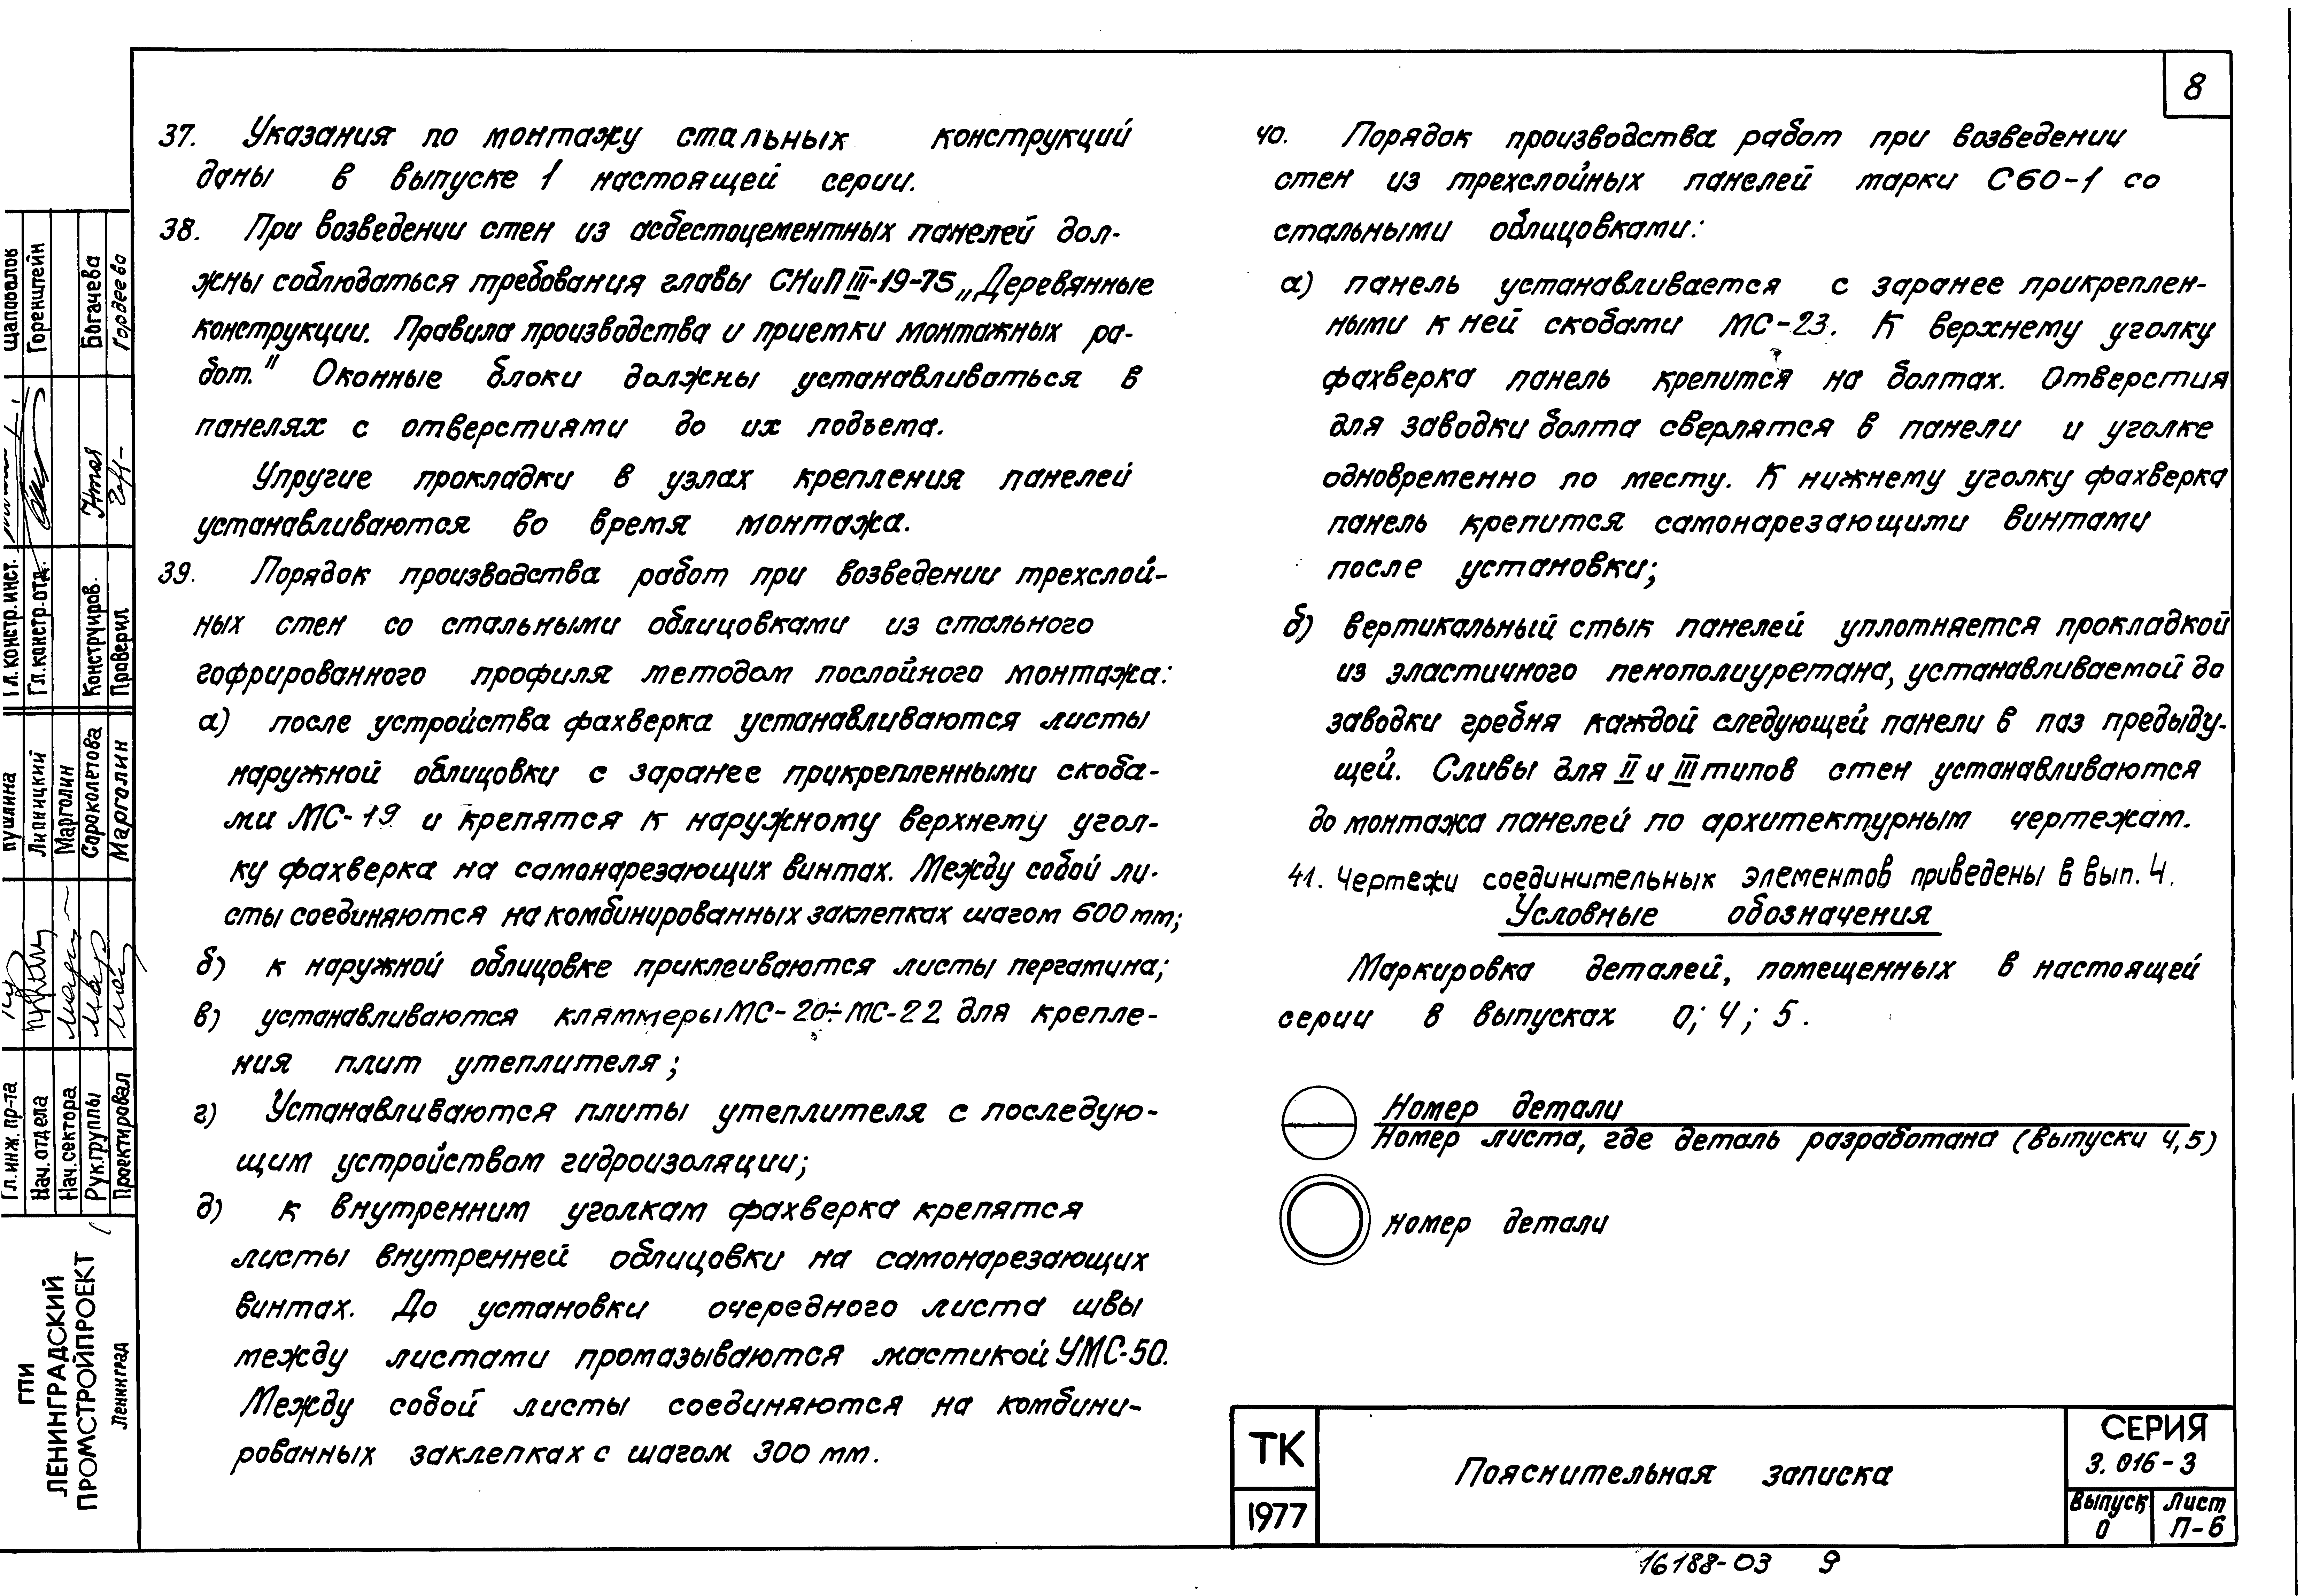 8
37. Указания по монтажу стальных конструкций
даны в выпуске 1 настоящей серии.
38. При возведении стен из асбестоцементных панелей дол-
жны соблюдаться требования главы СНиП III-19-75 „Деревянные
конструкции. Правила производства и приемки монтажных ра-
бот." Оконные блоки должны устанавливаться в
панелях с отверстиями до их подъема.
Упругие прокладки в узлах крепления панелей
устанавливаются во время монтажа.
39. Порядок производства работ при возведении трехслой-
ных стен со стальными облицовками из стального
гофрированного профиля методом послойного монтажа:
а) после устройства фахверка устанавливаются листы
наружной облицовки с заранее прикрепленными скоба-
ми МС-19 и крепятся к наружному верхнему угол-
ку фахверка на самонарезающих винтах. Между собой ли-
сты соединяются на комбинированных заклепках шагом 600 мм;
б) к наружной облицовке приклеиваются листы пергамина;
в) устанавливаются кляммеры МС-20÷МС-22 для крепле-
ния плит утеплителя;
г) Устанавливаются плиты утеплителя с последую-
щим устройством гидроизоляции;
д) к внутренним уголкам фахверка крепятся
листы внутренней облицовки на самонарезающих
винтах. До установки очередного листа швы
между листами промазываются мастикой УМС-50.
Между собой листы соединяются на комбини-
рованных заклепках с шагом 300 мм.
40. Порядок производства работ при возведении
стен из трехслойных панелей марки С60-1 со
стальными облицовками:
а) панель устанавливается с заранее прикреплен-
ными к ней скобами МС-23. К верхнему уголку
фахверка панель крепится на болтах. Отверстия
для заводки болта сверлятся в панели и уголке
одновременно по месту. К нижнему уголку фахверка
панель крепится самонарезающими винтами
после установки;
б) вертикальный стык панелей уплотняется прокладкой
из эластичного пенополиуретана, устанавливаемой до
заводки гребня каждой следующей панели в паз предыду-
щей. Сливы для II и III типов стен устанавливаются
до монтажа панелей по архитектурным чертежам.
41. Чертежи соединительных элементов приведены в вып. 4.
Условные обозначения
Маркировка деталей, помещенных в настоящей
серии в выпусках 0; 4; 5.
Номер детали
Номер листа, где деталь разработана (выпуски 4,5)
номер детали
ТК
1977
Пояснительная записка
СЕРИЯ
3.016-3
Выпуск
0
Лист
П-6
16188-03 9
Гл. инж. пр-та Пушлина Гл. констр. инст. Шаповалов
Нач. отдела Липницкий Гл. констр. отд. Горенштейн
Нач. сектора Марголин
Рук. группы Сороколетова Конструиров. Богачева
Проектировал Марголин Проверил Гордеева
ГПИ
ЛЕНИНГРАДСКИЙ
ПРОМСТРОЙПРОЕКТ
Ленинград